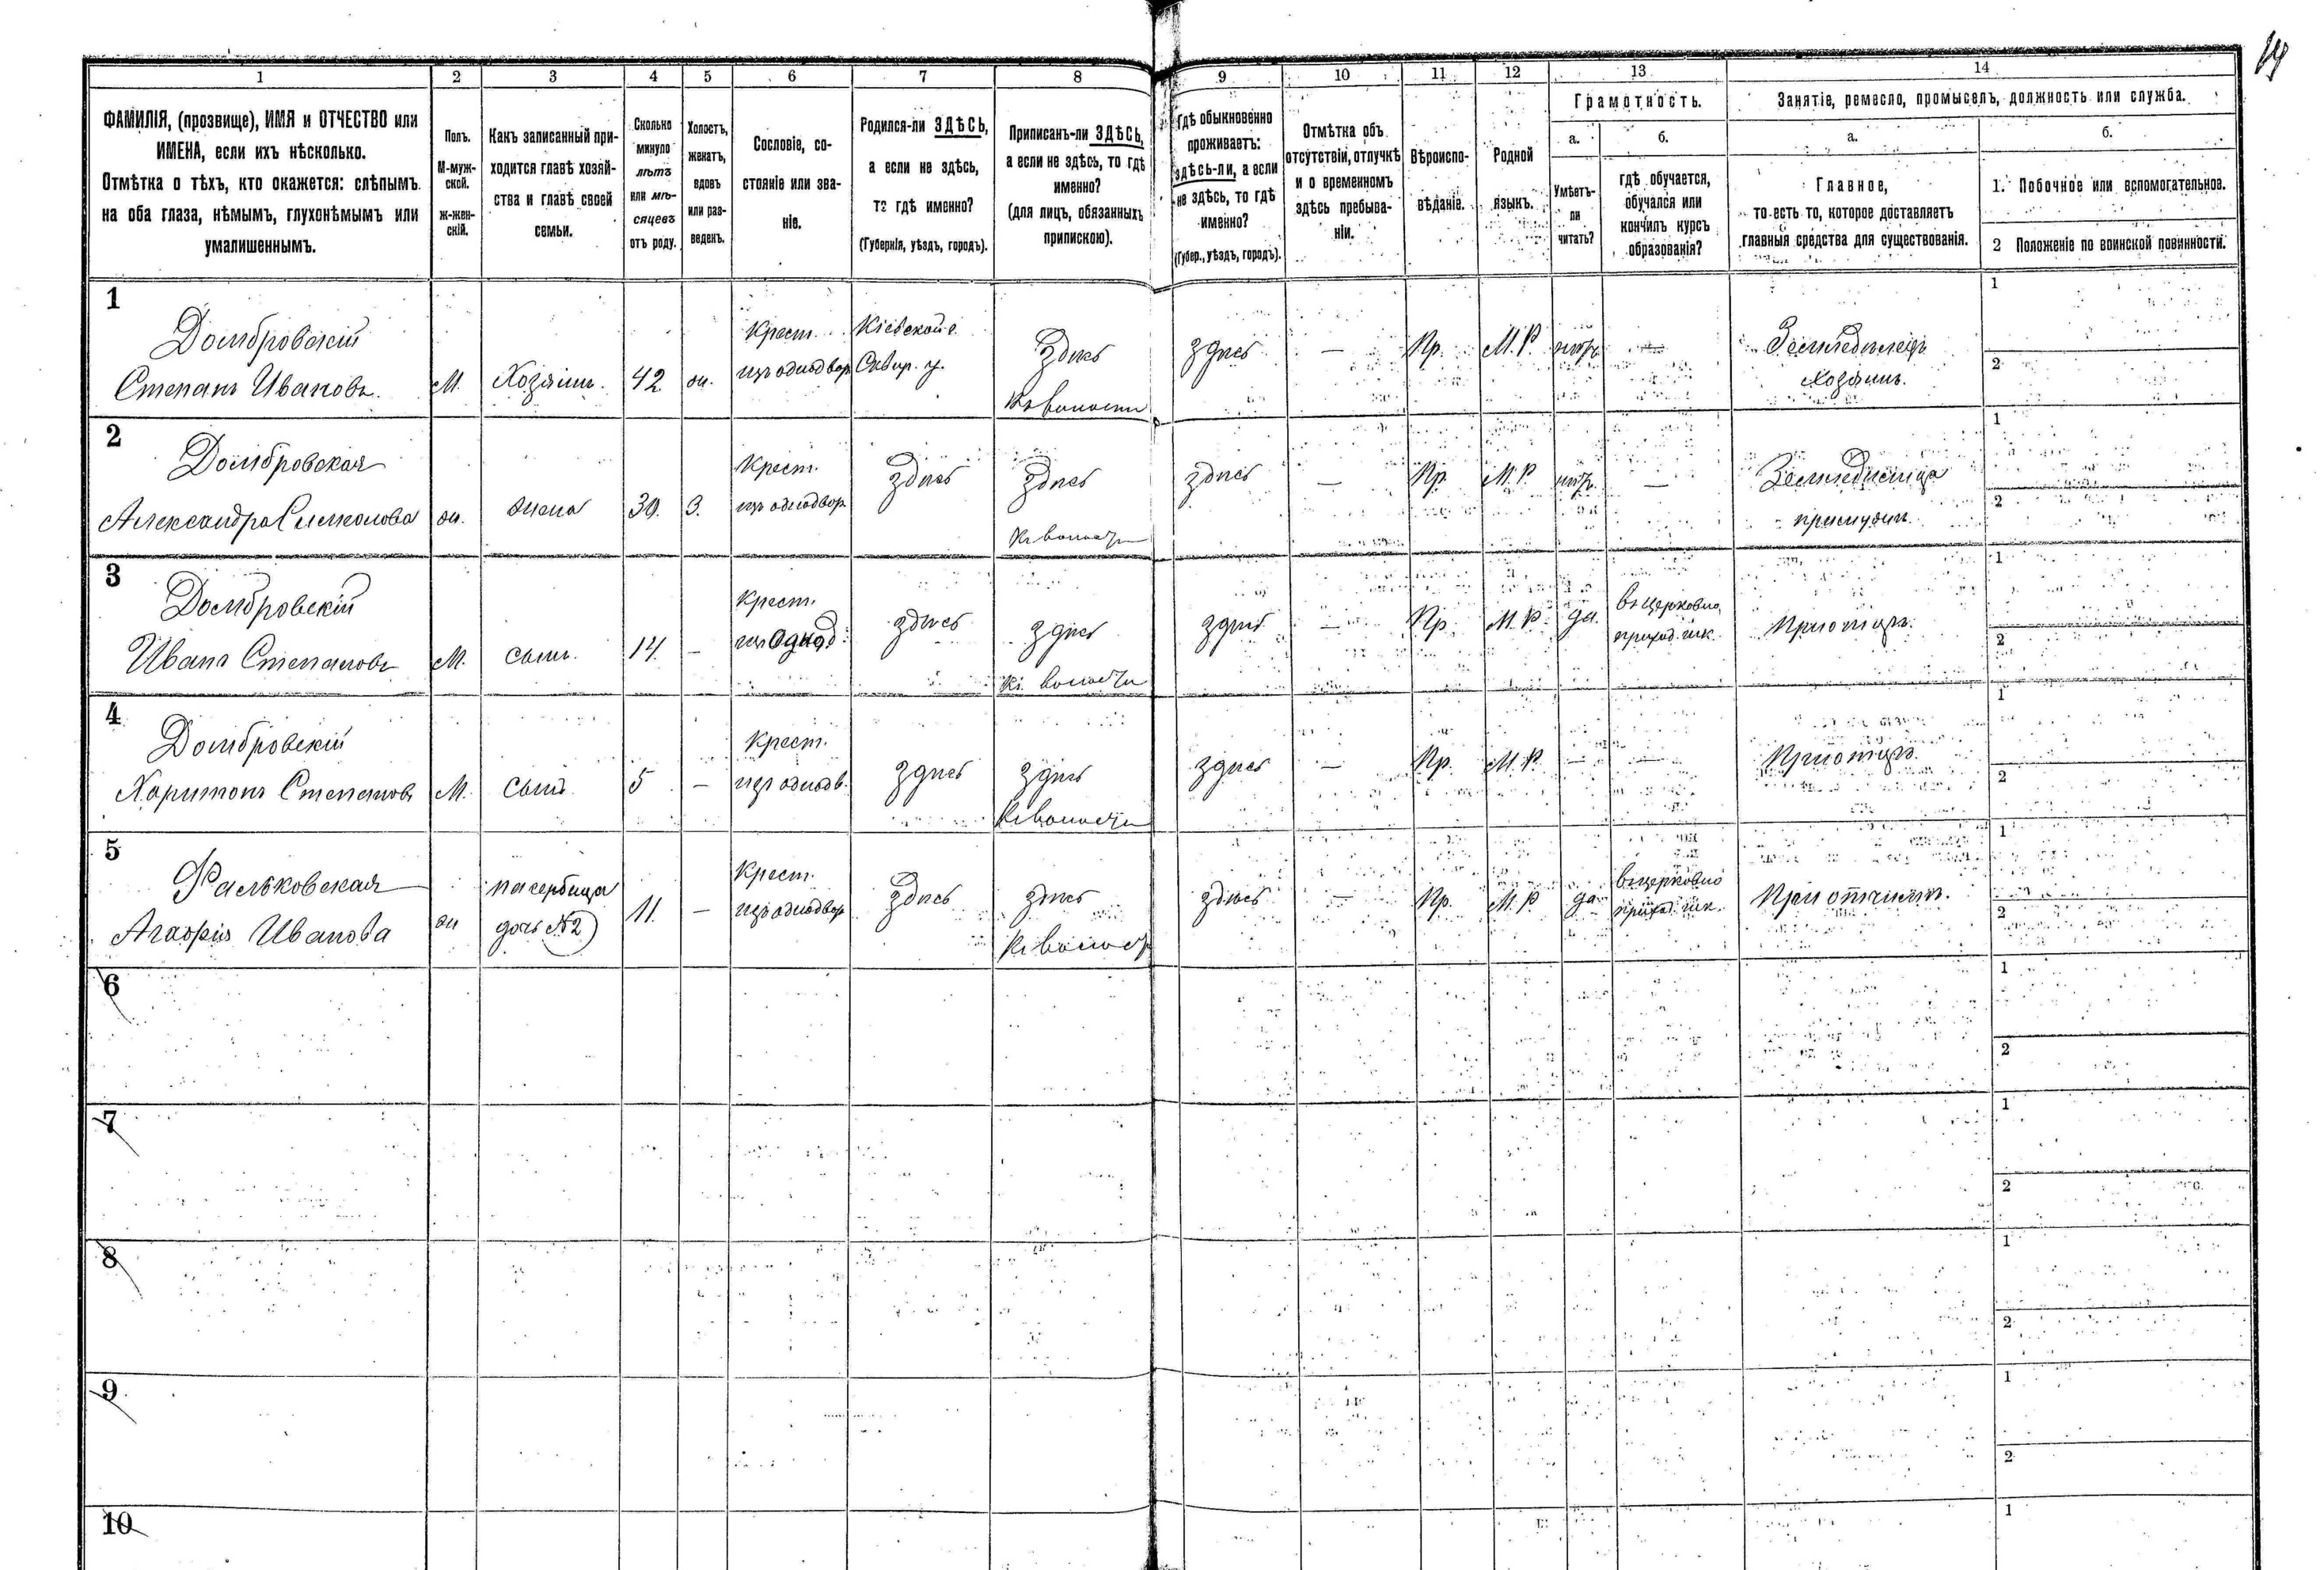 14
1 2 3 4 5 6 7 8 9 10 11 12 13 14
ФАМИЛІЯ, (прозвище), ИМЯ и ОТЧЕСТВО или
ИМЕНА, если ихъ нѣсколько.
Отмѣтка о тѣхъ, кто окажется: слѣпымъ
на оба глаза, нѣмымъ, глухонѣмымъ или
умалишеннымъ.
Полъ.
М-муж-
ской.
ж-жен-
скій.
Какъ записанный при-
ходится главѣ хозяй-
ства и главѣ своей
семьи.
Сколько
минуло
лѣтъ
или мѣ-
сяцевъ
отъ роду.
Холостъ,
женатъ,
вдовъ
или раз-
веденъ.
Сословіе, со-
стояніе или зва-
ніе.
Родился-ли ЗДѢСЬ,
а если не здѣсь,
то гдѣ именно?
(Губернія, уѣздъ, городъ).
Приписанъ-ли ЗДѢСЬ,
а если не здѣсь, то гдѣ
именно?
(для лицъ, обязанныхъ
припискою).
Гдѣ обыкновенно
проживаетъ:
здѣсь-ли, а если
не здѣсь, то гдѣ
именно?
(Губер., уѣздъ, городъ).
Отмѣтка объ
отсутствіи, отлучкѣ
и о временномъ
здѣсь пребыва-
ніи.
Вѣроиспо-
вѣданіе.
Родной
языкъ.
Грамотность.
а.
Умѣетъ-
ли
читать?
б.
гдѣ обучается,
обучался или
кончилъ курсъ
образованія?
Занятіе, ремесло, промыселъ, должность или служба.
а.
Главное,
то есть то, которое доставляетъ
главныя средства для существованія.
б.
1. Побочное или вспомогательное.
2 Положеніе по воинской повинности.
1
Домбровскій
Степанъ Ивановъ.
М.
Хозяинъ.
42
ж.
Крест.
изъ однодвор.
Кіевской г.
Сквир. у.
здѣсь
здѣсь
—
Пр.
М. Р.
—
Земледѣлецъ
хозяинъ.
1
2
2
Домбровская
Александра
ж.
жена
30.
З.
Крест.
изъ однодвор.
здѣсь
здѣсь
здѣсь
—
Пр.
М. Р.
—
1
2
3
Домбровскій
Иванъ Степановъ
М.
сынъ.
14.
—
Крест.
изъ однод.
здѣсь
здѣсь
здѣсь
—
Пр.
М. Р.
да.
въ церковно
приход. шк.
При отцѣ.
1
2
4
Домбровскій
Харитонъ Степановъ
М.
Сынъ
5
—
Крест.
изъ однодв.
здѣсь
здѣсь
здѣсь
—
Пр.
М. Р.
—
—
При отцѣ.
1
2
5
Фальковская
Агафія Иванова
ж
падчерица
дочь №2
11.
—
Крест.
изъ однодвор
здѣсь
здѣсь
здѣсь
—
Пр.
М. Р.
да
въ церковно
приход. шк.
При отчимѣ.
1
2
6
1
2
7
1
2
8
1
2
9
1
2
10
1